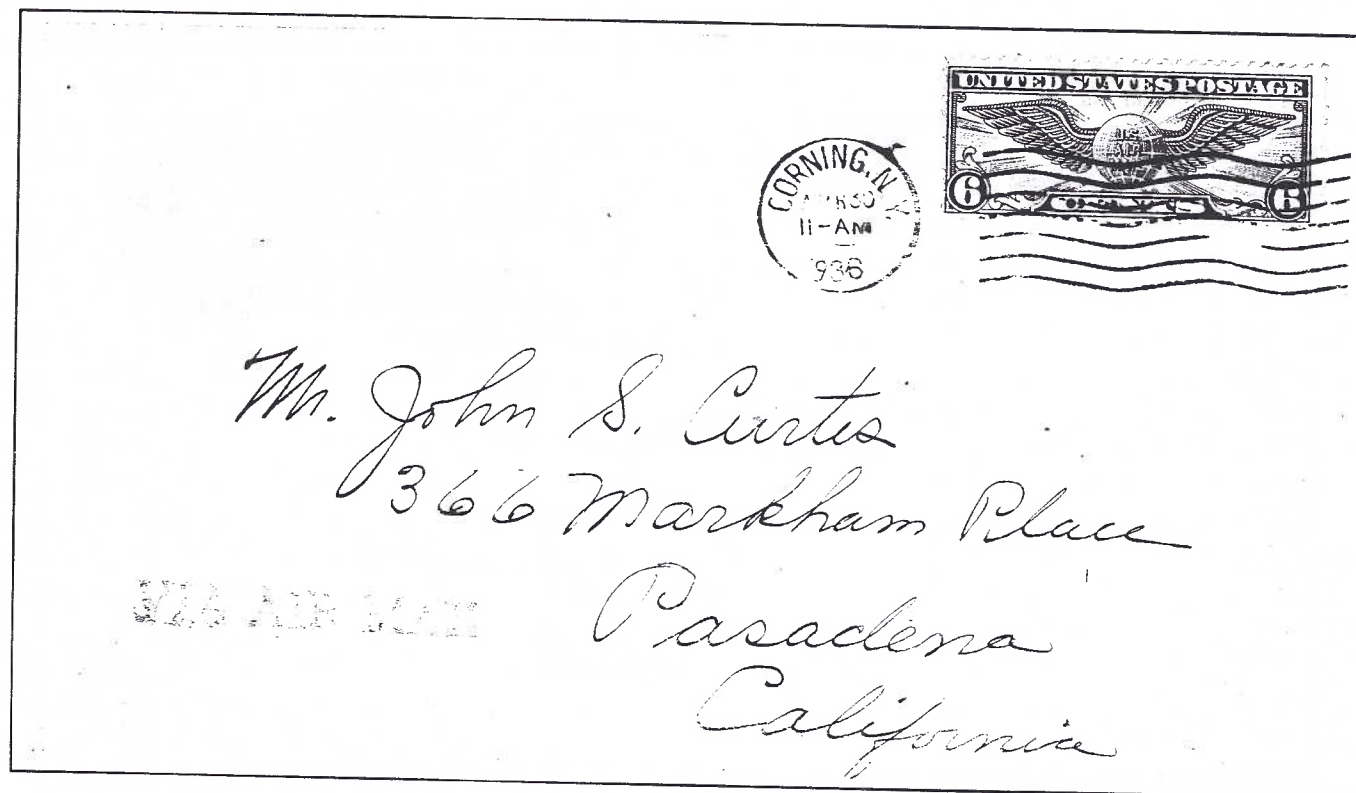 UNITED STATES POSTAGE
U.S.
AIR
MAIL
6 CENTS 6
CORNING, N.Y.
APR 30
11-AM
1936
Mr. John S. Curtis
366 Markham Place
Pasadena
California
VIA AIR MAIL